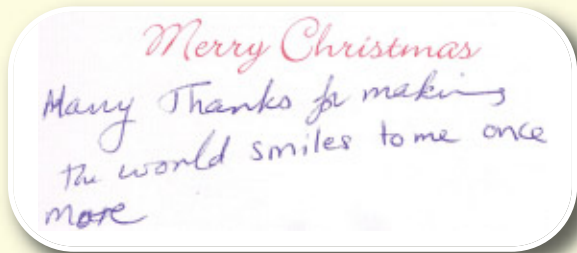 Merry Christmas
Many Thanks for making
the world smiles to me once
more